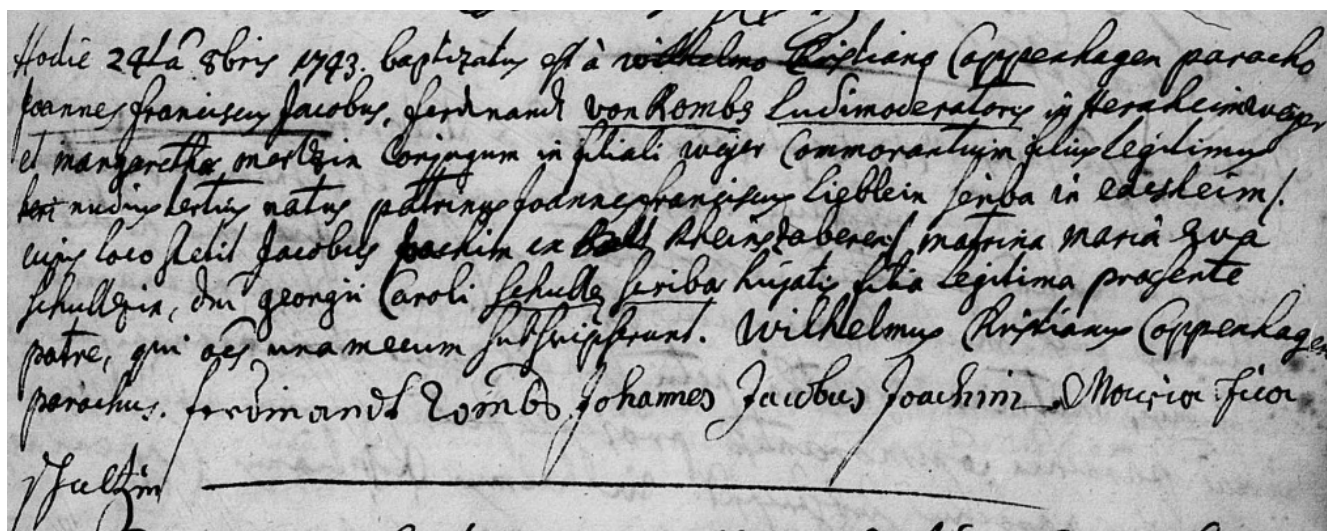 Hodie 24ta 8bris 1743. baptizatus est à Wilhelmo Kristiano Coppenhagen parocho
Joannes Franciscus Jacobus, Ferdinandi von Rombs Ludimoderatoris in
et Margaretha Mertzin Conjugum in filiali wejer Commorantium filius legitimus
heri nudius tertius natus patrinus Joannes Franciscus Lieblein scriba in edesheim/.
cuius loco stetit Jacobus Joachim ex Rheinzaberen/ matrina Maria Eva
Schultzin, dni georgii Caroli Schultz scribae hujatis filia legitima praesente
patre, qui oēs una mecum subscripserunt. Wilhelmus Kristianus Coppenhagen
parochus. ferdinandt Rombs Johannes Jacobus Joachim Maria Efa
schultzin